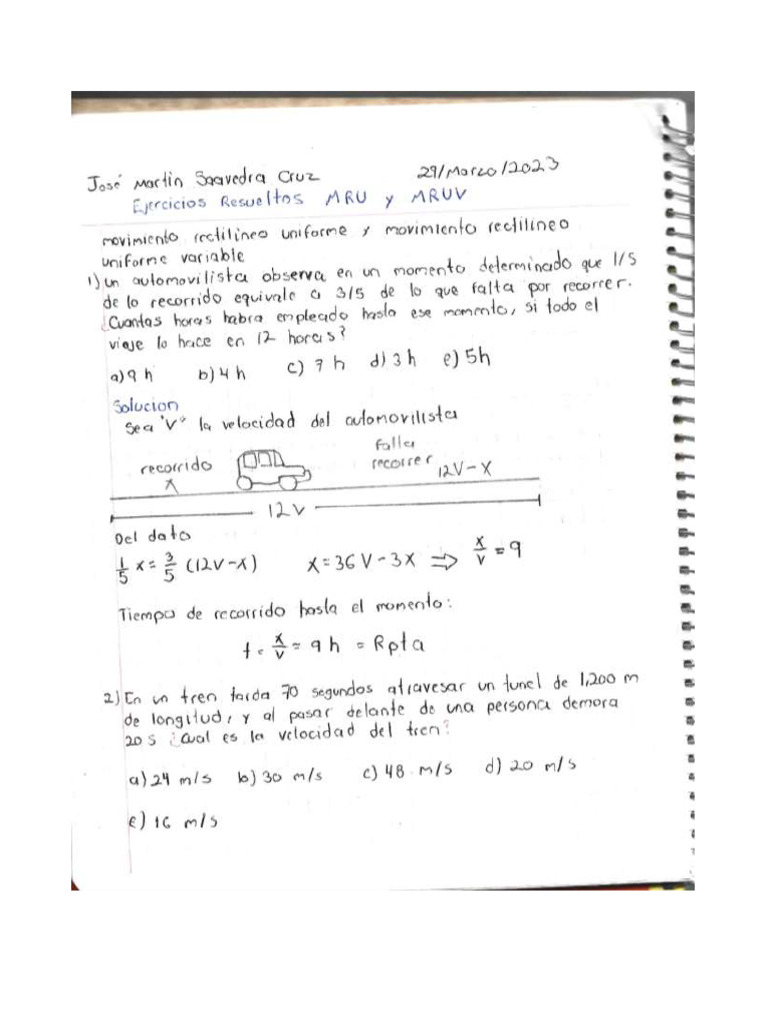 José Martin Saavedra Cruz 29/Marzo/2023
Ejercicios Resueltos MRU y MRUV
movimiento rectilineo uniforme y movimiento rectilineo
uniforme variable
1) Un automovilista observa en un momento determinado que 1/5
de lo recorrido equivale a 3/5 de lo que falta por recorrer.
¿Cuantas horas habra empleado hasta ese momento, si todo el
viaje lo hace en 12 horas?
a) 9 h b) 4 h c) 7 h d) 3 h e) 5h
Solucion
Sea "V" la velocidad del automovilista
recorrido
x
falta
recorrer 12V-x
12V
Del dato
1/5 x = 3/5 (12V-x) x = 36V - 3x ⇒ x/v = 9
Tiempo de recorrido hasta el momento:
t = x/v = 9h = Rpta
2) En un tren tarda 70 segundos atravesar un tunel de 1,200 m
de longitud, y al pasar delante de una persona demora
20 s ¿Cual es la velocidad del tren?
a) 24 m/s b) 30 m/s c) 48 m/s d) 20 m/s
e) 16 m/s